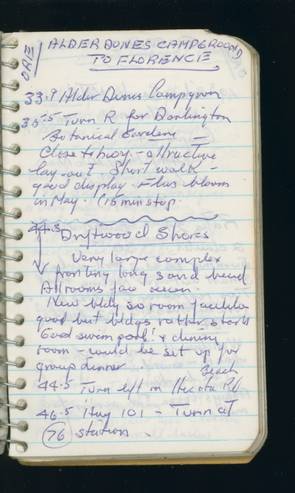 ORE
ALDER DUNES CAMPGROUND
TO FLORENCE
33.9 Alder Dunes Campgrou
35.5 Turn R for Darlington
Botanical Gardens -
Close to hiway - attractive
lay-out. Short walk -
good display. Flws bloom
in May. (15 min stop
44.3 Driftwood Shores
Very large complex
fronting long sand beach
All rooms face ocean.
New bldg so room facilities
good but bldgs rather stark
Good swim pool & dining
room - could be set up for
group dinner
Beach
44.5 Turn left on Heceta Rd
46.5 Hwy 101 - Turn at
76 station.